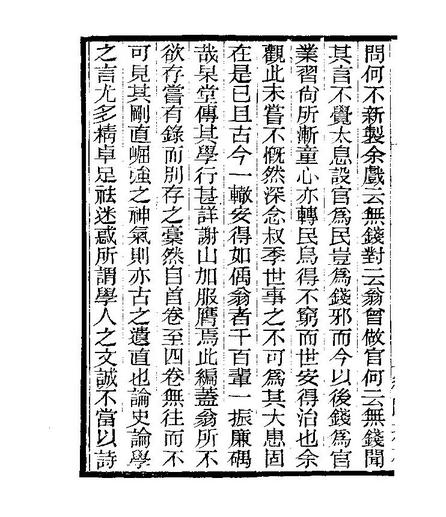 問何不新製余戲云無錢對云翁曾做官何云無錢聞
其言不覺太息設官爲民豈爲錢邪而今以後錢爲官
業習尙所漸童心亦轉民焉得不窮而世安得治也余
觀此未嘗不慨然深念叔季世事之不可爲其大患固
在是已且古今一轍安得如偶翁者千百輩一振廉碼
哉杲堂傳其學行甚詳謝山加服膺焉此編蓋翁所不
欲存嘗有錄而别存之稾然自首卷至四卷無往而不
可見其剛直崛強之神氣則亦古之遺直也論史論學
之言尤多精卓足祛迷惑所謂學人之文誠不當以詩